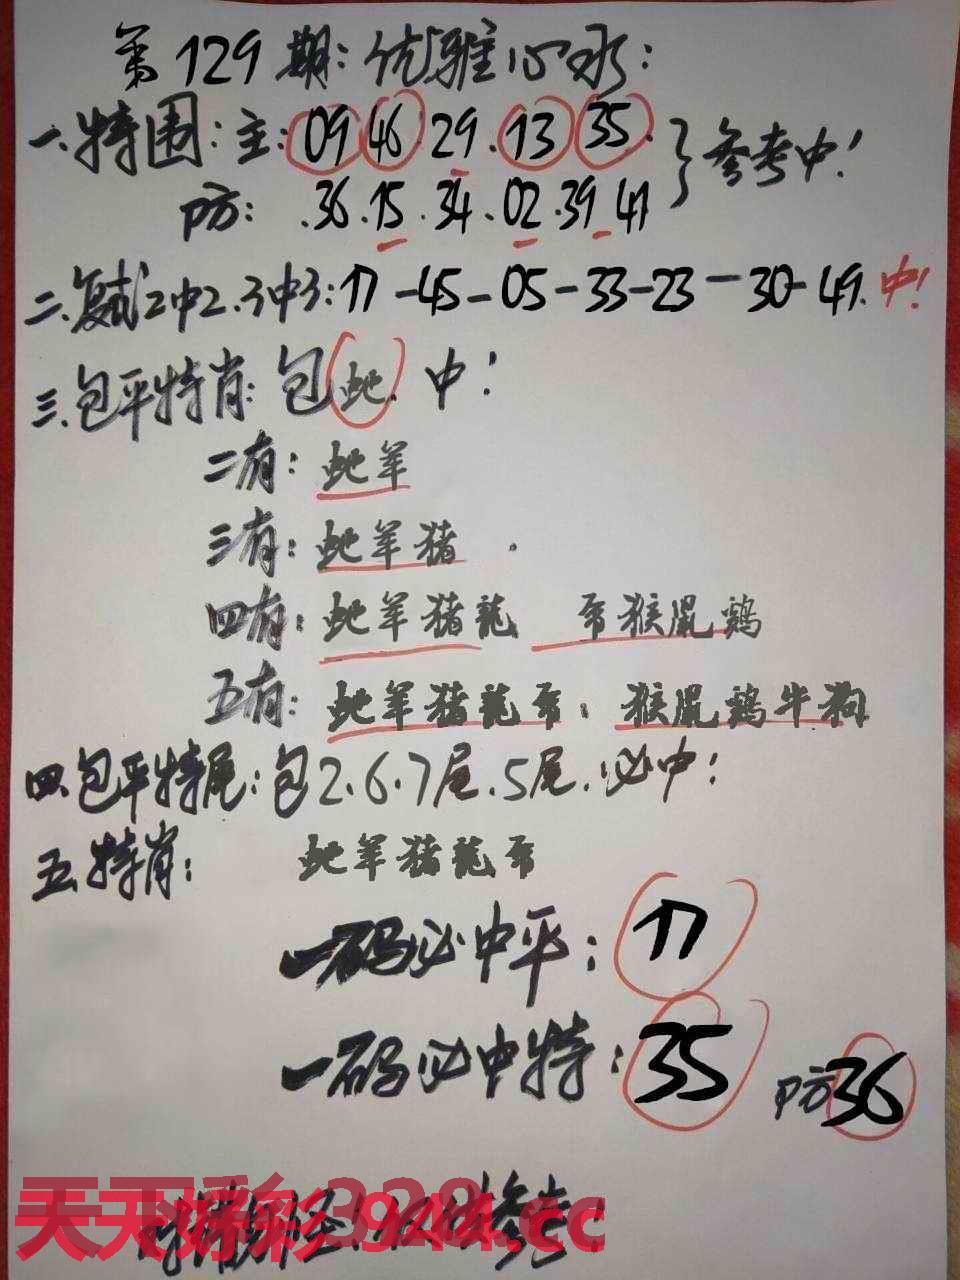 第129期:优雅心水:
一.特围:主:09 46 29.13 35.}参考中!
防:.36.15.34.02.39 41
二.复式2中2.3中3:17-45-05-33-23-30-49.中!
三.包平特肖:包蛇.中!
二有:蛇羊
三有:蛇羊猪.
四有:蛇羊猪龍 猴鼠鸡
五有:蛇羊猪龍 猴鼠鸡牛狗
四.包平特尾:包2.6.7尾.5尾.必中!
五.特肖: 蛇羊猪龍
一码必中平:17
一码必中特:35 防36
天天好彩 944.cc
参考